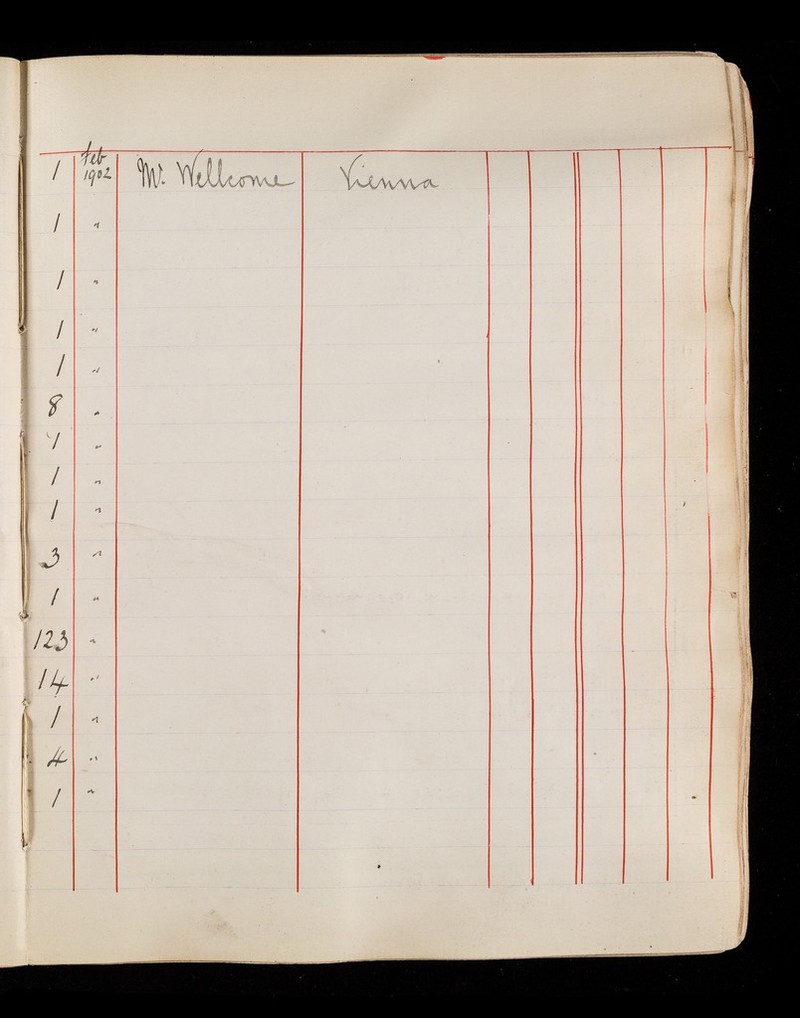 1 Feb 1902 Mr. Wellcome Vienna
1 "
1 "
1 "
1 "
8 "
1 "
1 "
1 "
3 "
1 "
123 "
14 "
1 "
4 "
1 "